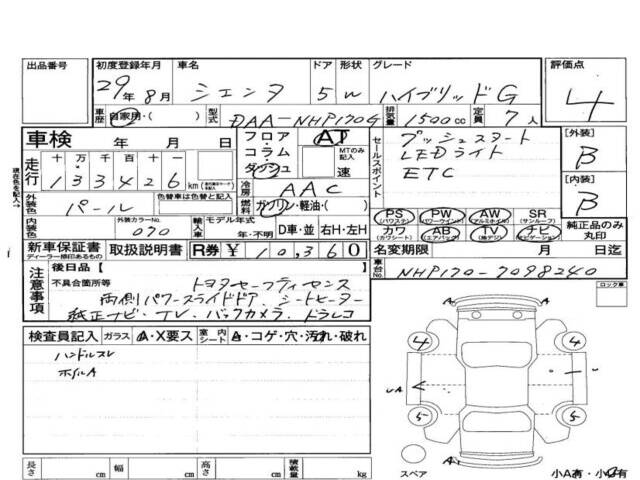 出品番号 初度登録年月 車名 ドア 形状 グレード 評価点
29年8月 シエンタ 5 W ハイブリッドG 4
車歴 自家用・( ) 型式 DAA-NHP170G 排気量 1500cc 定員 7人
車検 年 月 日 フロア・コラム・ダッシュ AT MTのみ記入 速
セールスポイント プッシュスタート
LEDライト
ETC
[外装] B
[内装] B
走行 十万 万 千 百 十 一
133426 km
冷房 AAC
外装色 パール 色替車は色替と記入 燃料 ガソリン・軽油・( )
内装色 外装カラーNo. 070 輸入車 モデル年式 年・不明 D車・並 右H・左H
PS (パワステ) PW (パワーウインド) AW (アルミホイル) SR (サンルーフ)
カワ (カワシート) AB (エアバッグ) TV (地デジ) ナビ (ナビゲーション)
純正品のみ丸印
新車保証書 ディーラー捺印あるもの 取扱説明書 R券 ¥ 10,360 名変期限 月 日迄
車台No. NHP170-7098240
注意事項 後日品 [ ]
不具合箇所等 トヨタセーフティセンス
両側パワースライドドア、シートヒーター
純正ナビ・TV、バックカメラ、ドラレコ
現在色を記入→
ロック車
検査員記入 ガラス A・X要ス 室内シート A・コゲ・穴・汚れ・破れ
ハンドルスレ
ホイルA
A
4 4
uA
5 5
A
スペア 小A有・小 有
長さ cm 幅 cm 高さ cm 積載量 kg